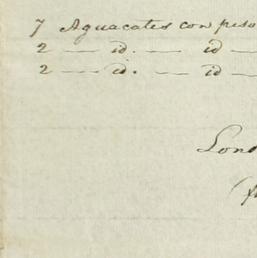 7 Aguacates con peso
2 — id. — id —
2 — id. — id —
Lond